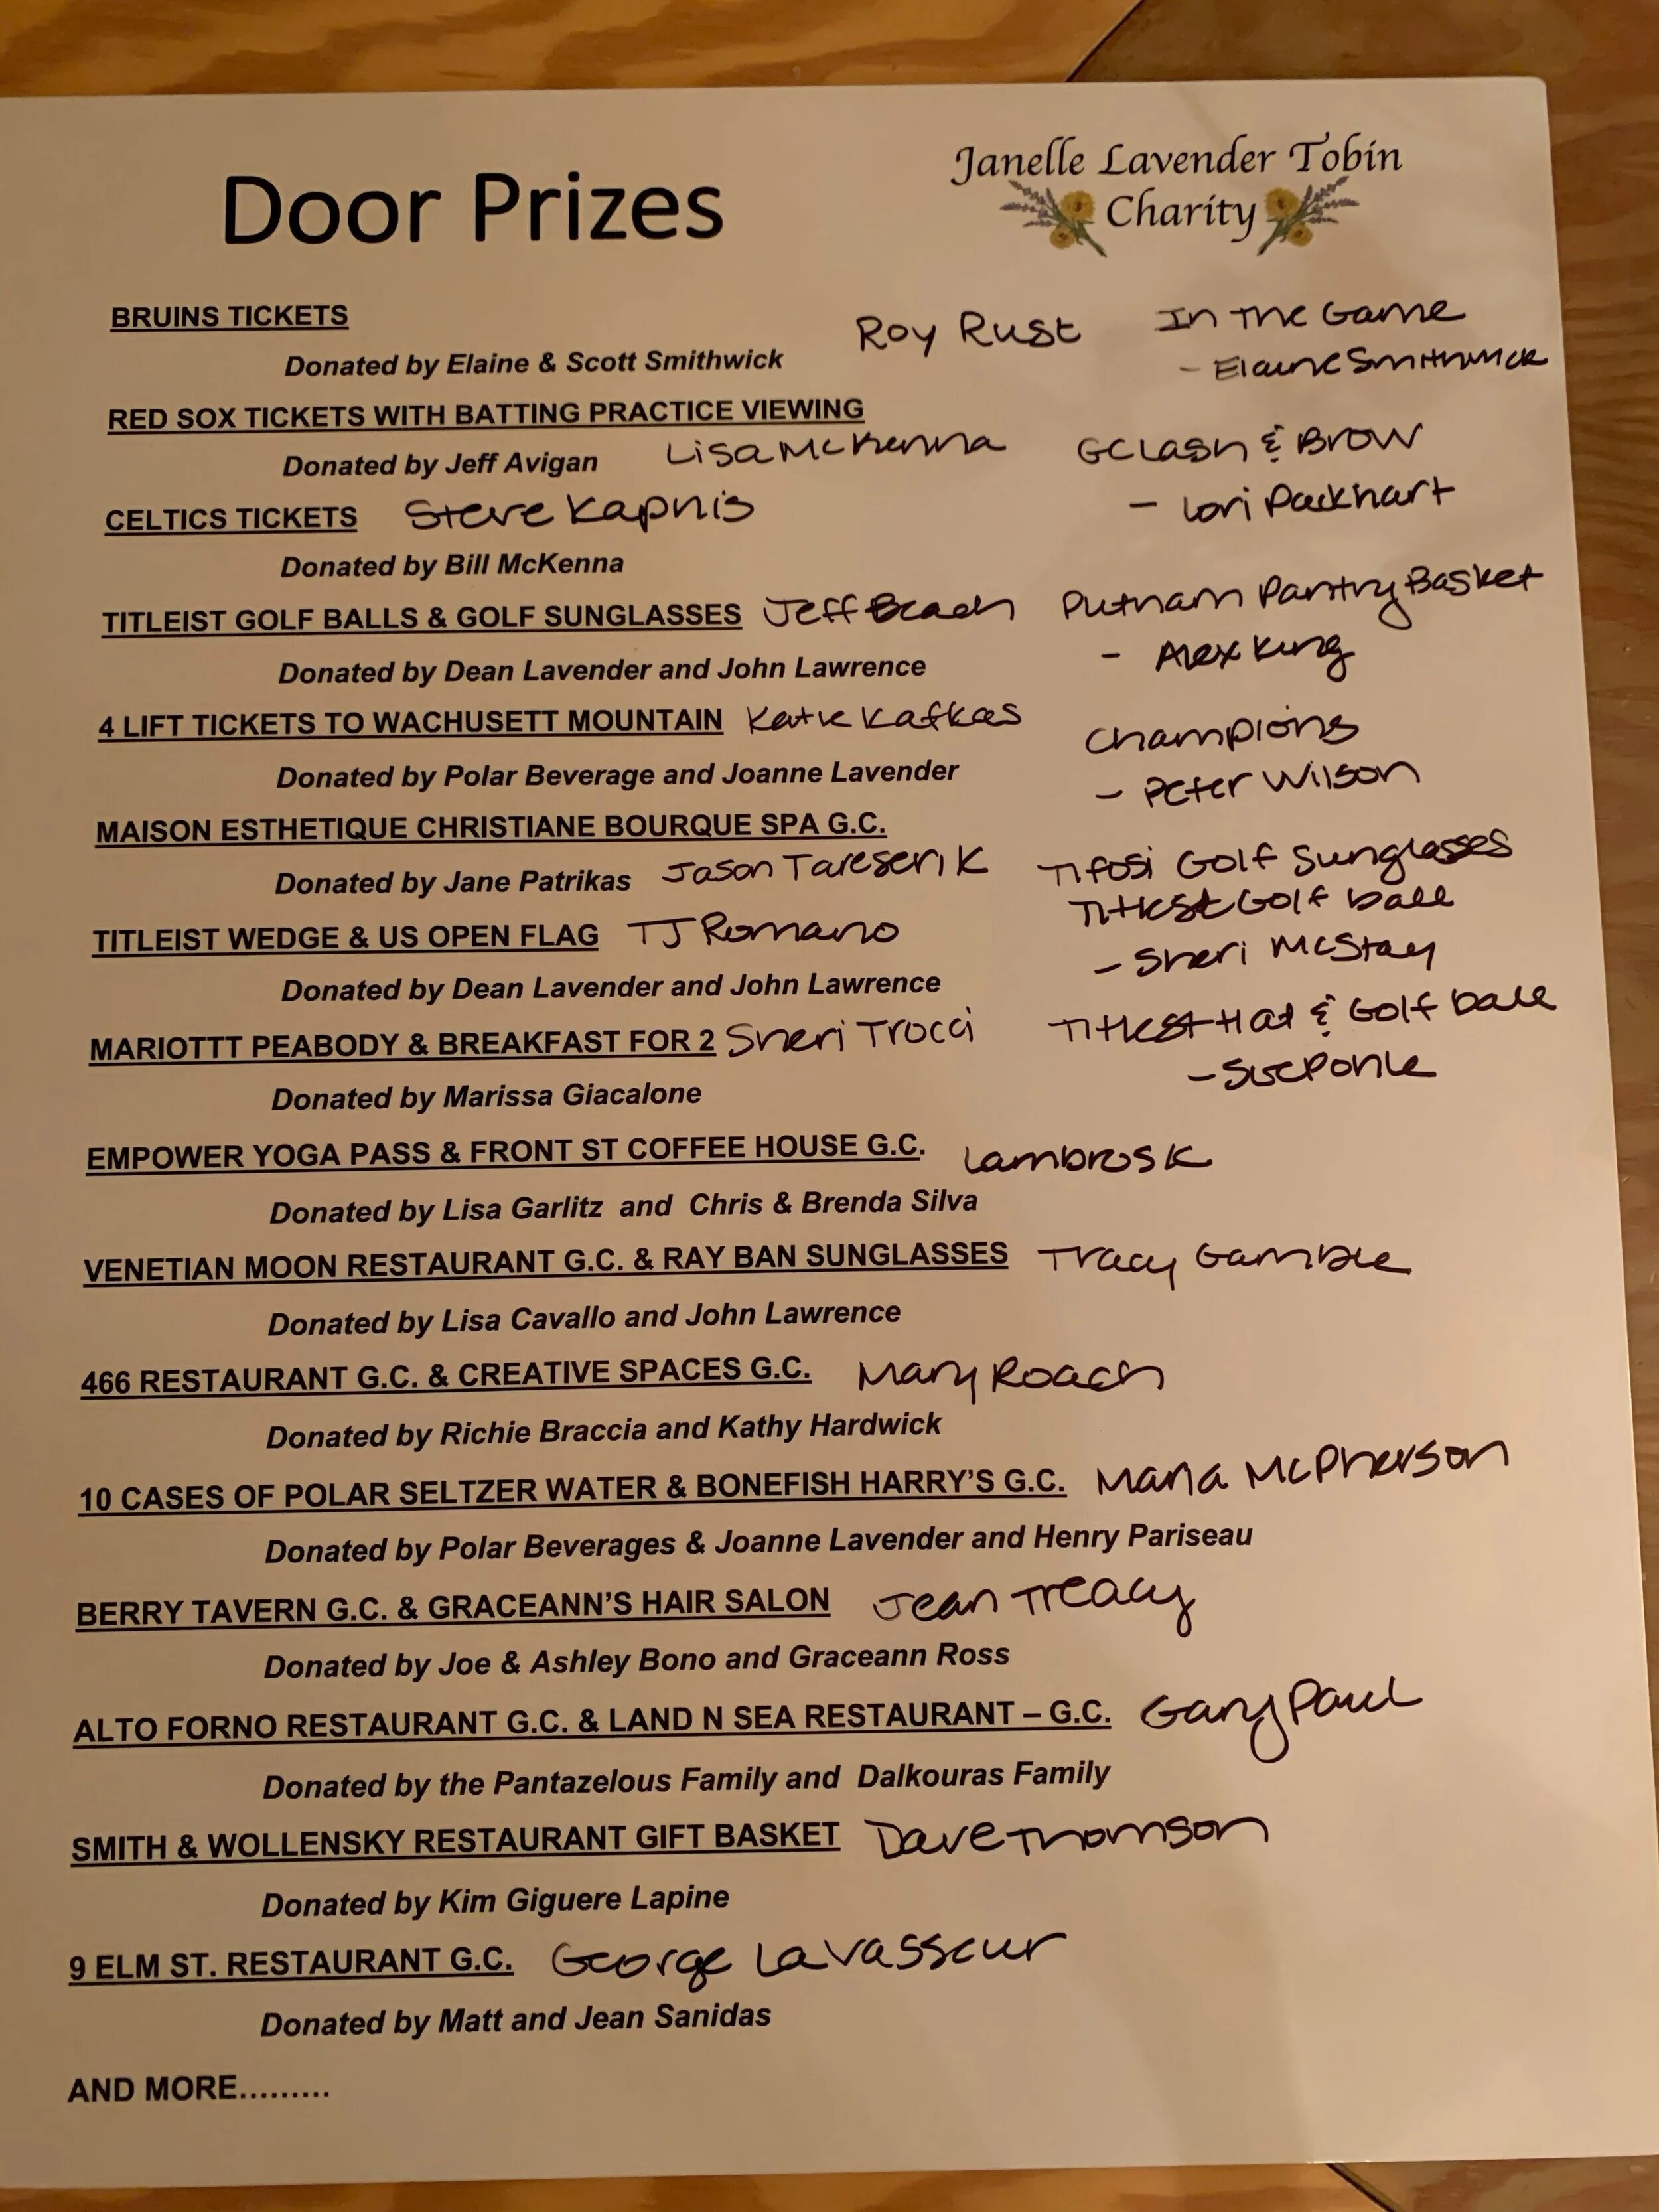 Door Prizes
Janelle Lavender Tobin
Charity
BRUINS TICKETS
Roy Rust
In The Game
Donated by Elaine & Scott Smithwick
- Elaine Smithwick
RED SOX TICKETS WITH BATTING PRACTICE VIEWING
Donated by Jeff Avigan
Lisa McKenna
GC Lash & Brow
CELTICS TICKETS
Steve Kapnis
- Lori Packhart
Donated by Bill McKenna
TITLEIST GOLF BALLS & GOLF SUNGLASSES
Jeff Beach
Putnam Pantry Basket
Donated by Dean Lavender and John Lawrence
- Alex King
4 LIFT TICKETS TO WACHUSETT MOUNTAIN
Katie Kafkas
Champions
Donated by Polar Beverage and Joanne Lavender
- Peter Wilson
MAISON ESTHETIQUE CHRISTIANE BOURQUE SPA G.C.
Donated by Jane Patrikas
Jason
Tifosi Golf Sunglasses
Titleist Golf ball
TITLEIST WEDGE & US OPEN FLAG
TJ Romano
- Sheri McStay
Donated by Dean Lavender and John Lawrence
MARIOTTT PEABODY & BREAKFAST FOR 2
Sheri Trocci
Titleist Hat & Golf ball
- Sue
Donated by Marissa Giacalone
EMPOWER YOGA PASS & FRONT ST COFFEE HOUSE G.C.
Lambros K
Donated by Lisa Garlitz and Chris & Brenda Silva
VENETIAN MOON RESTAURANT G.C. & RAY BAN SUNGLASSES
Tracy Gamble
Donated by Lisa Cavallo and John Lawrence
466 RESTAURANT G.C. & CREATIVE SPACES G.C.
Mary Roach
Donated by Richie Braccia and Kathy Hardwick
10 CASES OF POLAR SELTZER WATER & BONEFISH HARRY'S G.C.
Maria McPherson
Donated by Polar Beverages & Joanne Lavender and Henry Pariseau
BERRY TAVERN G.C. & GRACEANN'S HAIR SALON
Jean Treacy
Donated by Joe & Ashley Bono and Graceann Ross
ALTO FORNO RESTAURANT G.C. & LAND N SEA RESTAURANT – G.C.
Gary Paul
Donated by the Pantazelous Family and Dalkouras Family
SMITH & WOLLENSKY RESTAURANT GIFT BASKET
Dave Thomson
Donated by Kim Giguere Lapine
9 ELM ST. RESTAURANT G.C.
George Lavasseur
Donated by Matt and Jean Sanidas
AND MORE.........